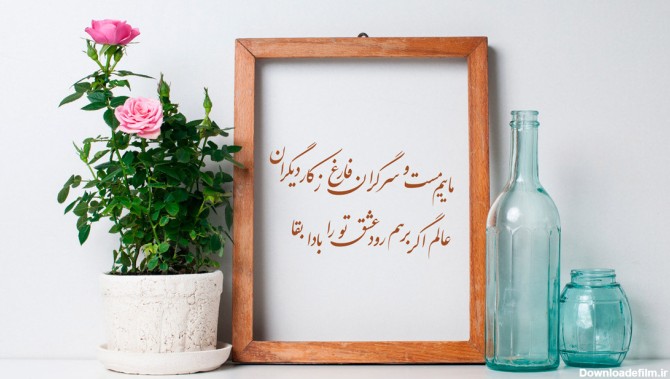 ماییم مست و سرگران فارغ ز کار دیگران
عالم اگر برهم رود عشق تو را بادا بقا
Downloadefilm.ir